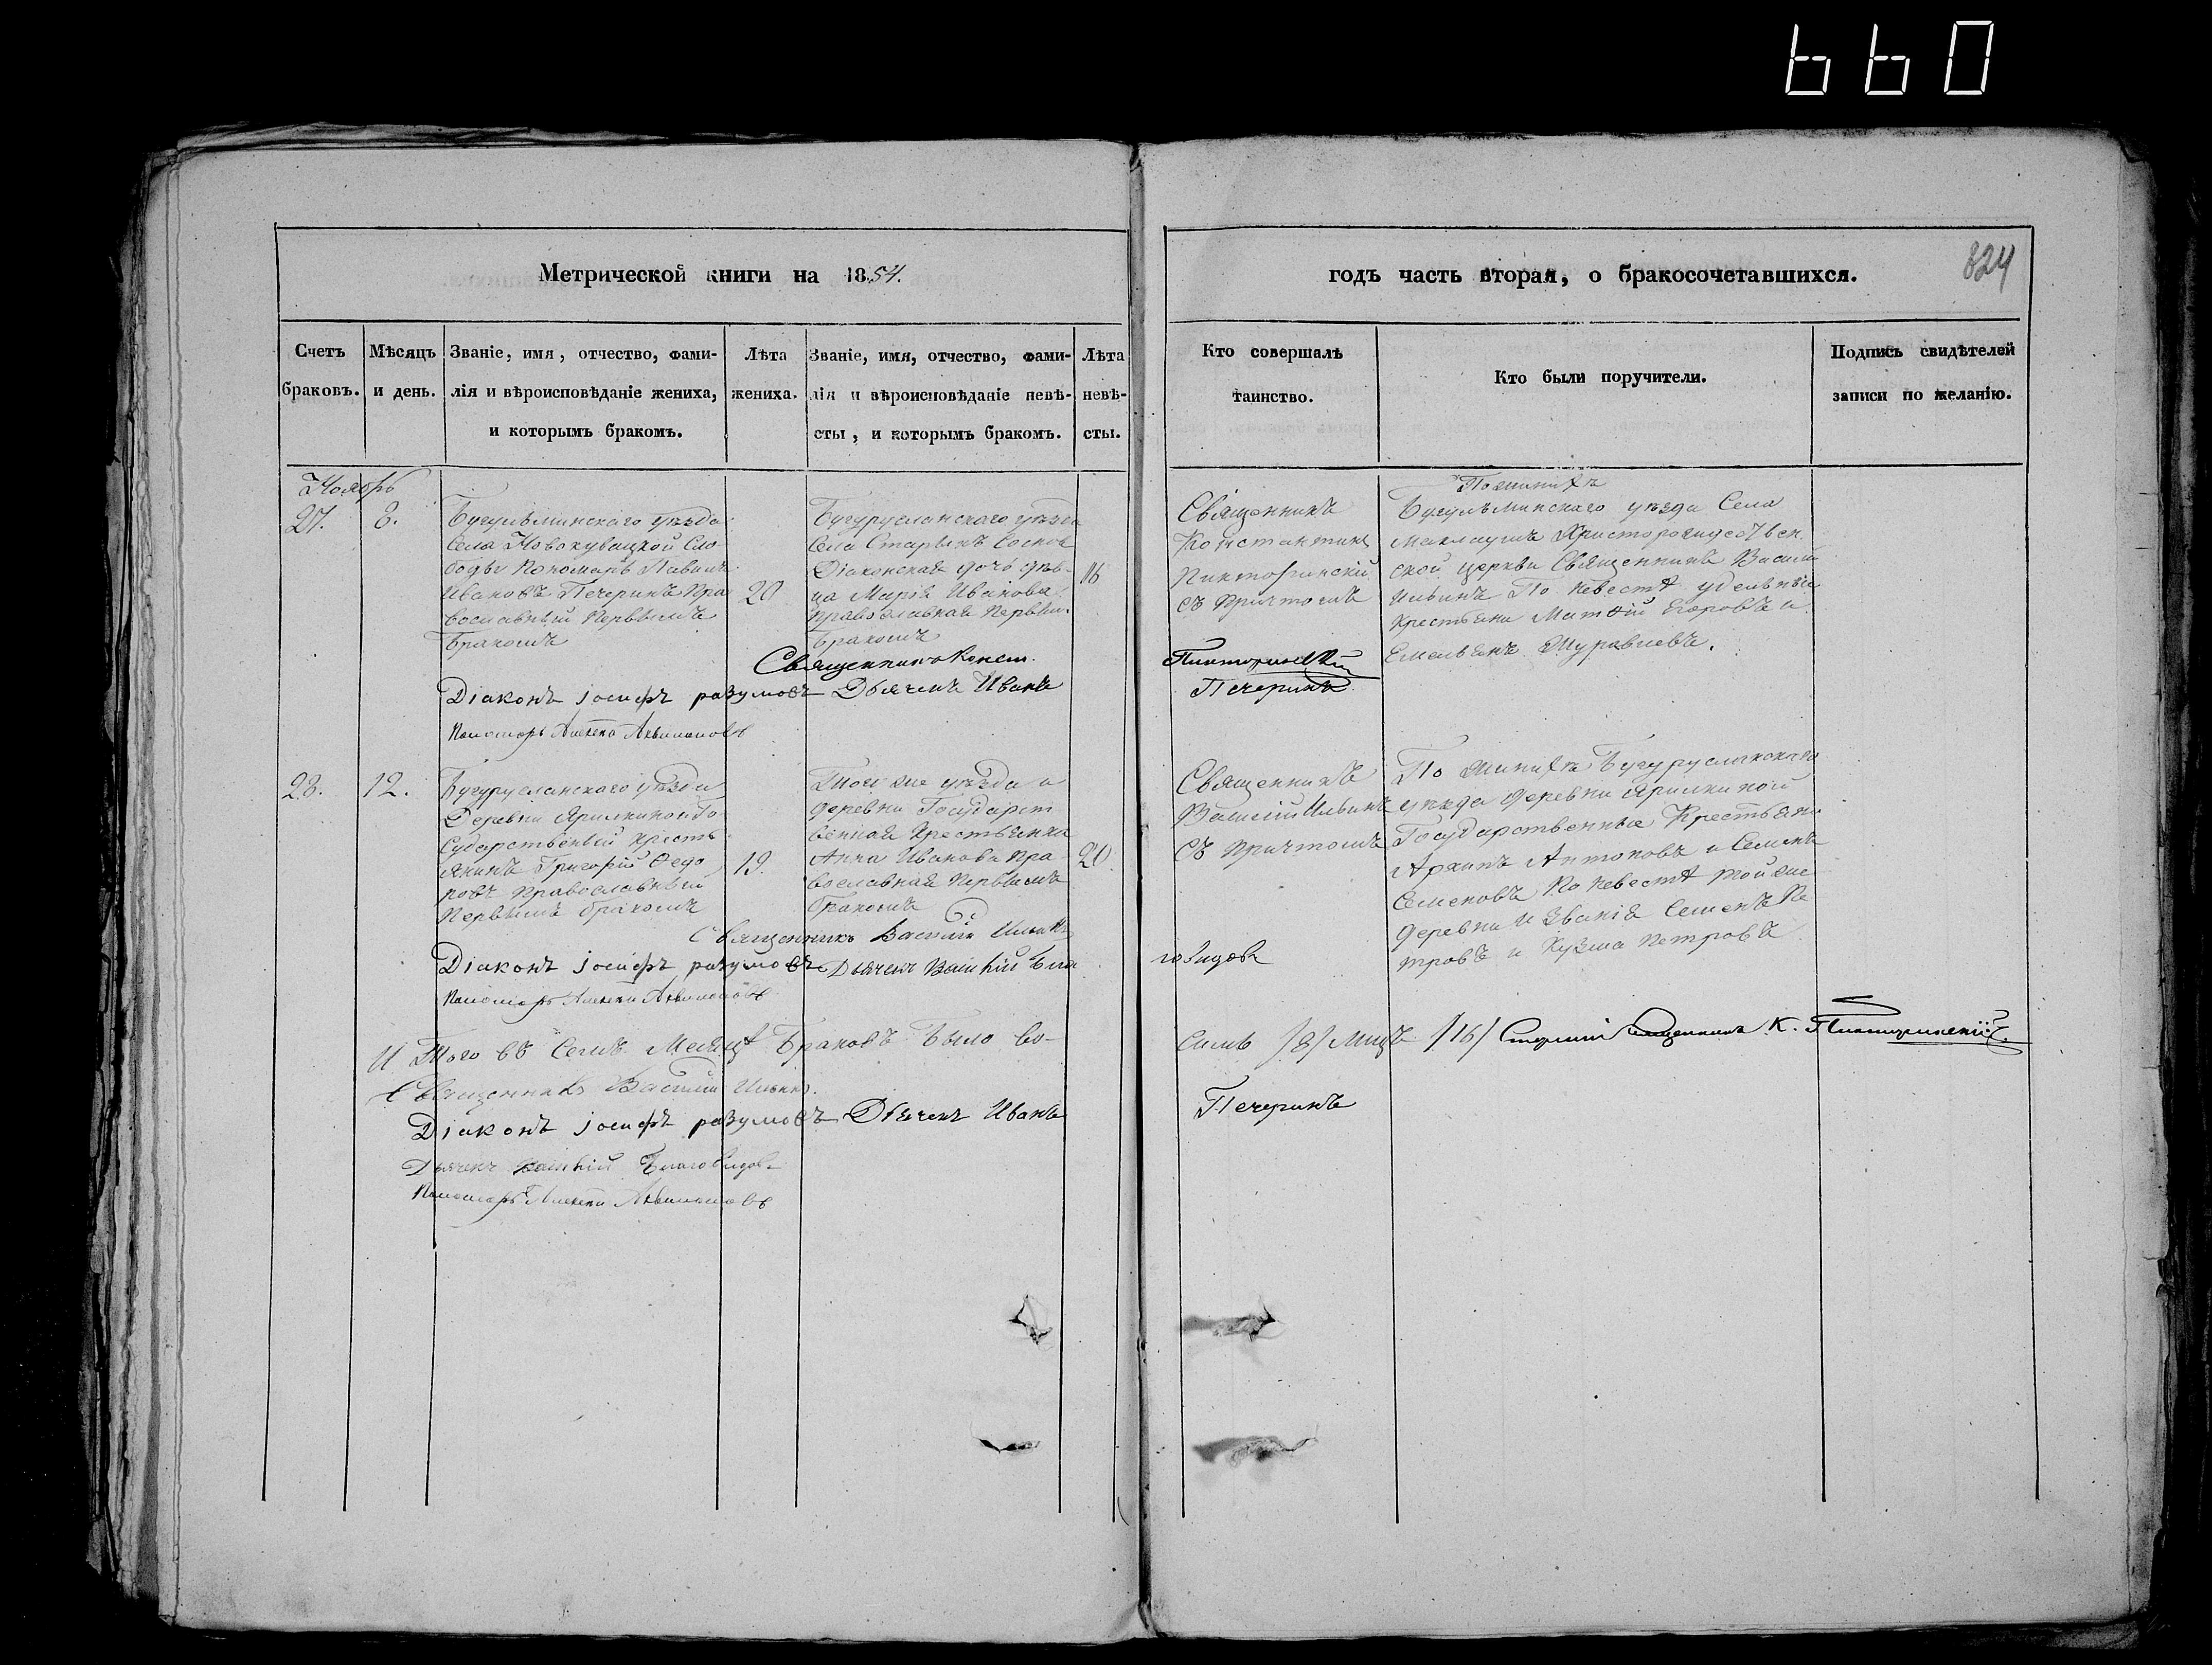 660
Метрической книги на 1854.
годъ часть вторая, о бракосочетавшихся.
824
Счетъ браковъ.
Мѣсяцъ и день.
Званіе, имя, отчество, фами-
лія и вѣроисповѣданіе жениха,
и которымъ бракомъ.
Лѣта жениха.
Званіе, имя, отчество, фами-
лія и вѣроисповѣданіе невѣ-
сты, и которымъ бракомъ.
Лѣта невѣ-
сты.
Кто совершалъ
таинство.
Кто были поручители.
Подпись свидѣтелей
записи по желанію.
Ноябрь
27.
8.
Бугульминскаго уѣзда
Села Новокувацкой Сло-
боды Пономарь Павилъ
Ивановъ Печеринъ Пра
вославный Первымъ
Бракомъ
20
Бугурусланскаго уѣзда
Села Старыхъ Соснов
Діаконская дочь дѣв-
ца Марія Иванова
православная Первым
Бракомъ
16
Священникъ
Константинъ
Пикторинскій
съ Причтомъ
По женихѣ
Бугульминскаго уѣзда Села
Маклауша Христорождественс
ской церкви Священникъ Василій
Ильинъ По невестѣ удельныи
Крестьяни Матѳій Егоровъ и
Емельянъ Журавлевъ.
Священникъ Конст. Пикторинскій
Діаконъ Іосифъ разумовъ Дьячекъ Иванъ Печеринъ
Пономарь Алексей Аквилоновъ
28.
12.
Бугурусланскаго уѣзда
Деревни Ярилкиной Го
сударственый кресть
янинъ Григорій Ѳедо
ровъ Православный
Первымъ бракомъ
19.
Той же уѣзда и
деревни Государст
венная Крестьянка
Анна Иванова Пра-
вославная Первымъ
Бракомъ
20.
Священникъ
Василій Ильинъ
съ Причтомъ
По Женихѣ Бугурусланскаго
уѣзда деревни Ярилкиной
Государственные Крестьяне
Архипъ Антоновъ и Семенъ
Семеновъ По невестѣ той же
деревни и Званія Семенъ Пе
тровъ и Кузма Петровъ
Священникъ Василій Ильинъ
Діаконъ Іосифъ разумовъ Дьячекъ Василій Благовидовъ
Пономарь Алексей Аквилоновъ
И Того въ Семъ Месяцѣ Браковъ было во-
семь /8/ Лицъ /16/ Старшій Священникъ К. Пикторинскій.
Священникъ Василій Ильинъ.
Діаконъ Іосифъ разумовъ Дьячекъ Иванъ Печеринъ
Дьячекъ Василій Благовидовъ
Пономарь Алексей Аквилоновъ